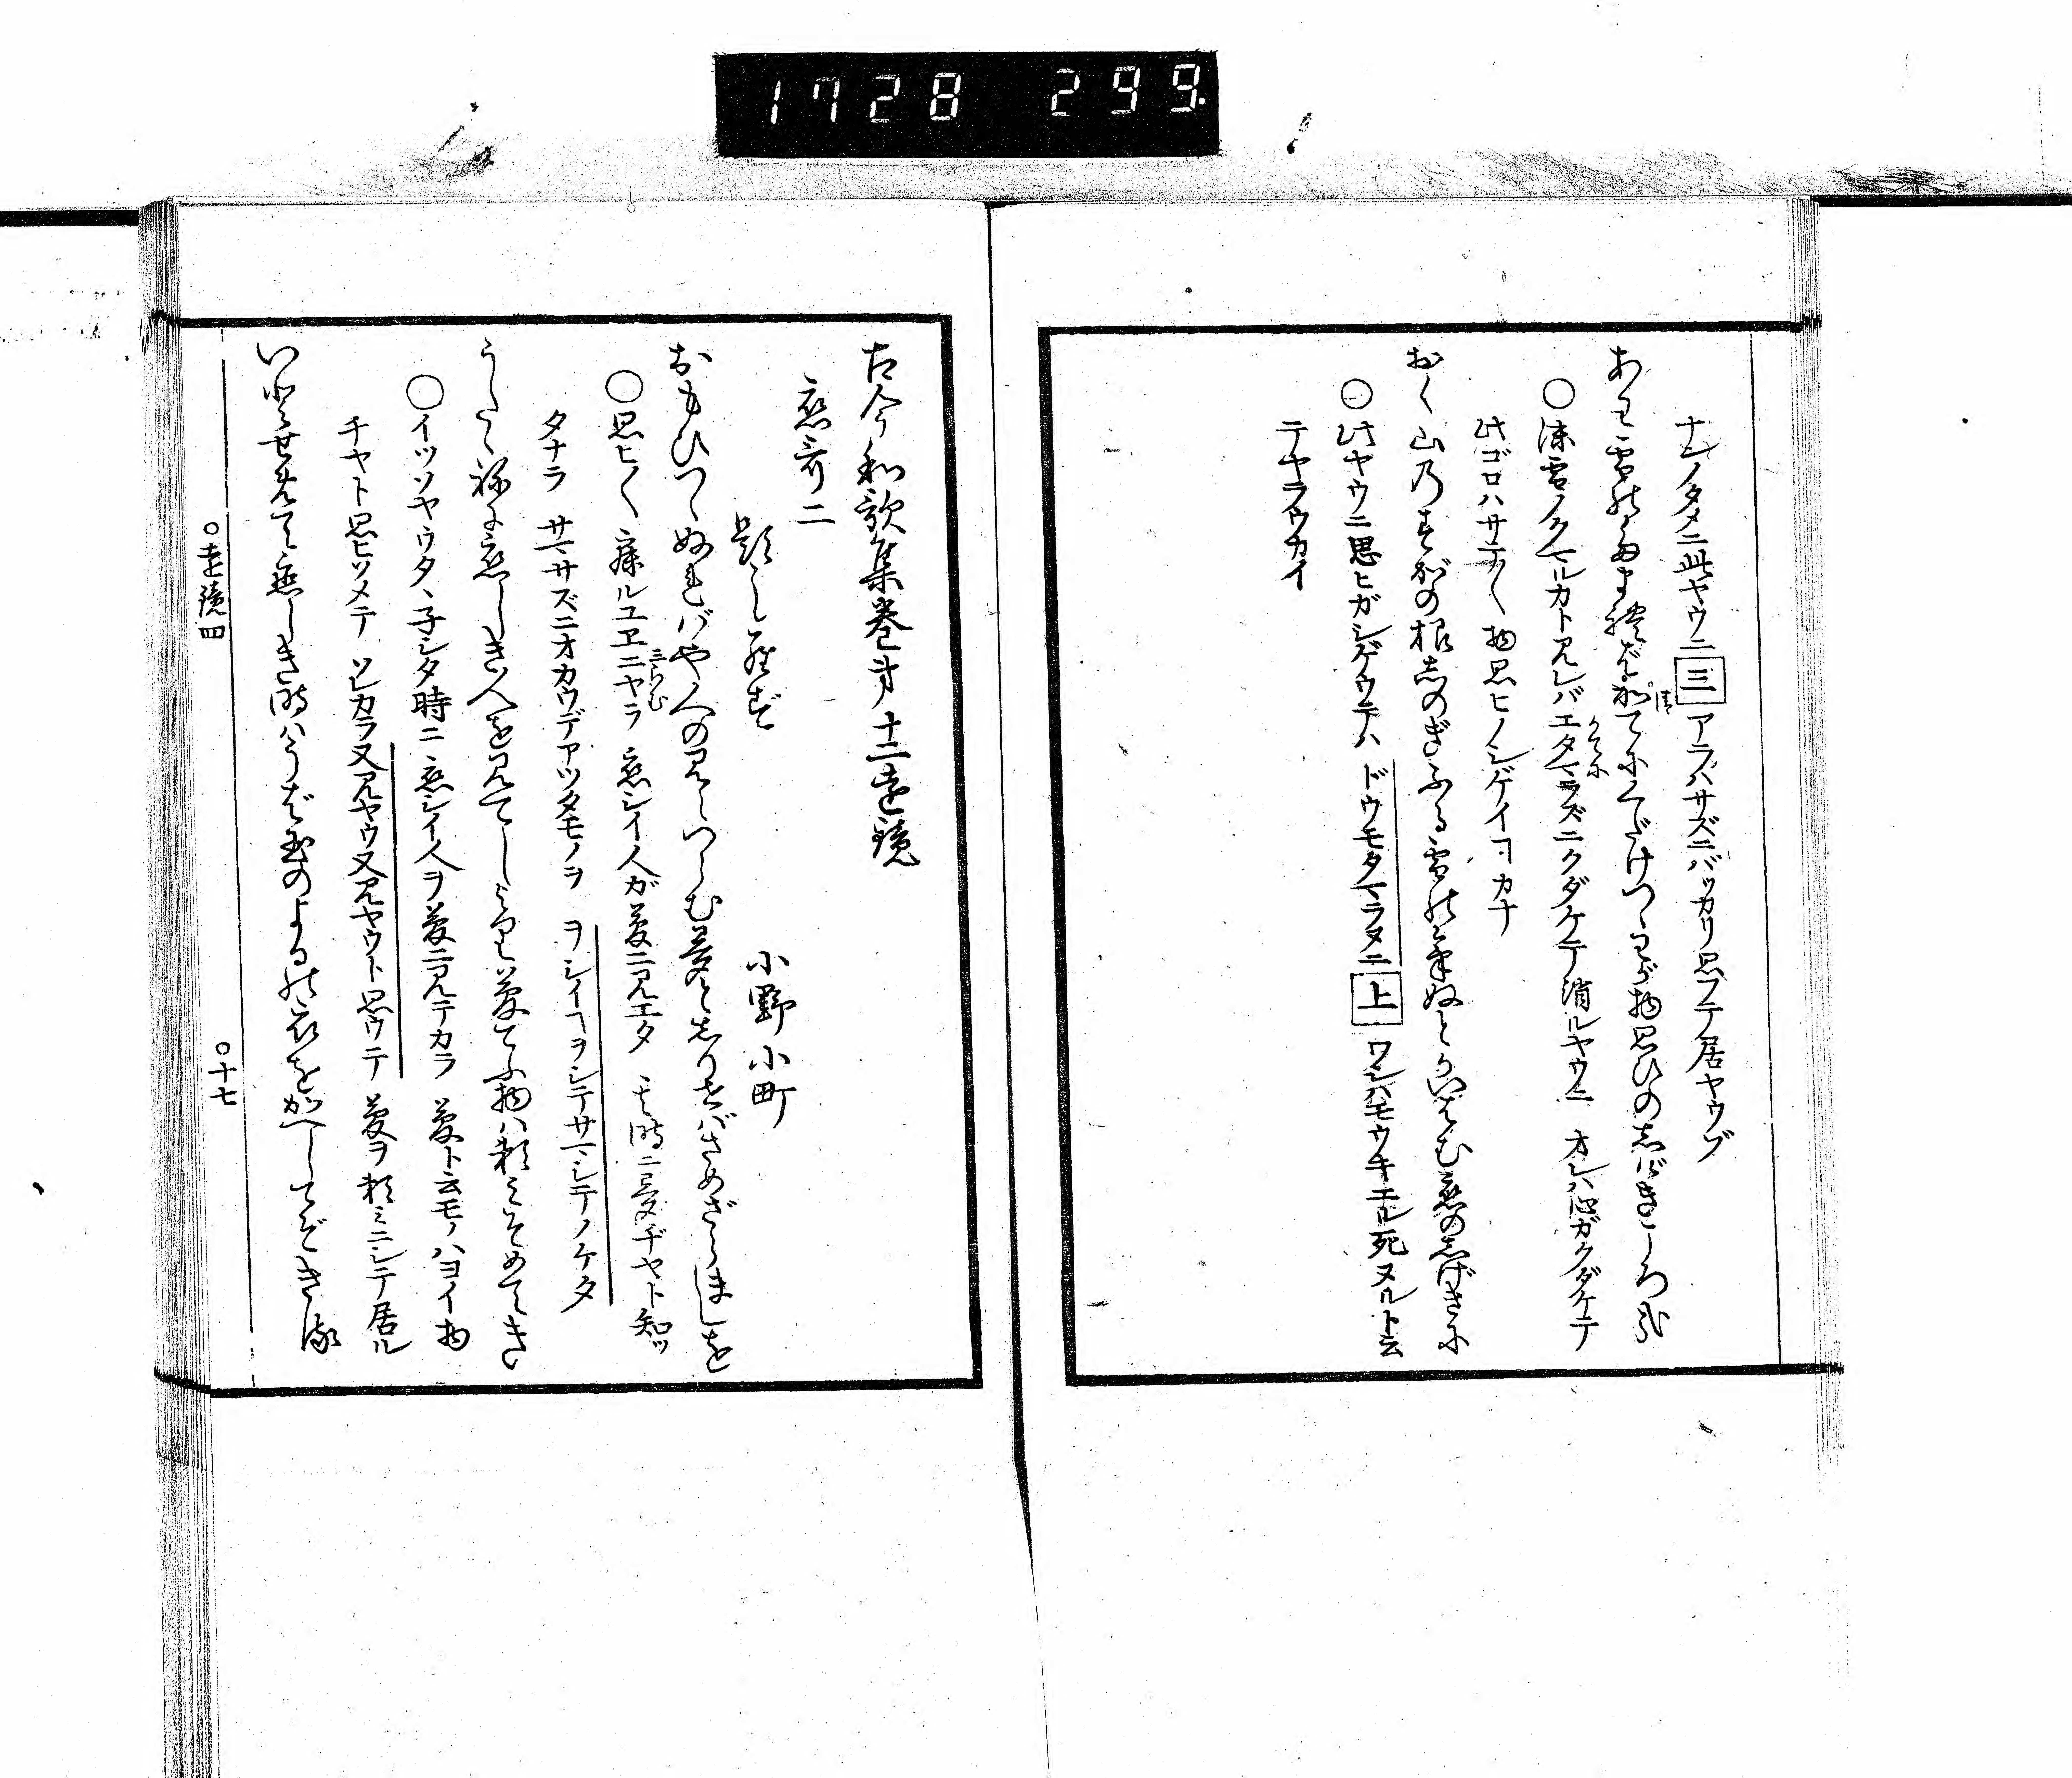 1728 299
ナンノタメニ此ヤウニ三アラハサズニバッカリ思フテ居ヤウゾ
あわ雪のたまればかてにくだけつゝわが物思ひのしげきころ哉
○沫雪ノタマルカト見レバエタマラズニクダケテ消ルヤウニ オレハ心ガクダケテ
此ゴロハサテ〱物思ヒノシゲイヿカナ
おく山のすがの根しのぎふる雪のけぬとかいはむ恋のしげきに
○此ヤウニ思ヒガシゲウテハ ドウモタマラヌタニ上ワシハモウキエル死ヌルト云
テヤラウカイ
古今和歌集巻第十二遠鏡
恋哥二
題しらず
小野小町
おもひつゝぬればや人の見えつらむ夢としりせばさめざらましを
○思ヒ〱寐ルユヱニヤラ 恋シイ人ガ夢ニ見エタ 其時ニ夢ヂヤト知ッ
らむ
タナラ サマサズニオカウデアッタモノヲ ヲシイヿヲシテサマシテノケタ
うたゝねに恋しき人を見てしより夢てふ物は頼みそめてき
○イツゾヤウタヽ子シタ時ニ 恋シイ人ヲ夢ニ見テカラ 夢ト云モノハヨイ物
ヂヤト思ヒソメテ ソレカラ又見ヤウ又見ヤウト思ウテ 夢ヲ頼ミニシテ居ル
いとせめて恋しき時はうば玉のよるの衣をかへしてぞきる
○遠鏡四
○十七